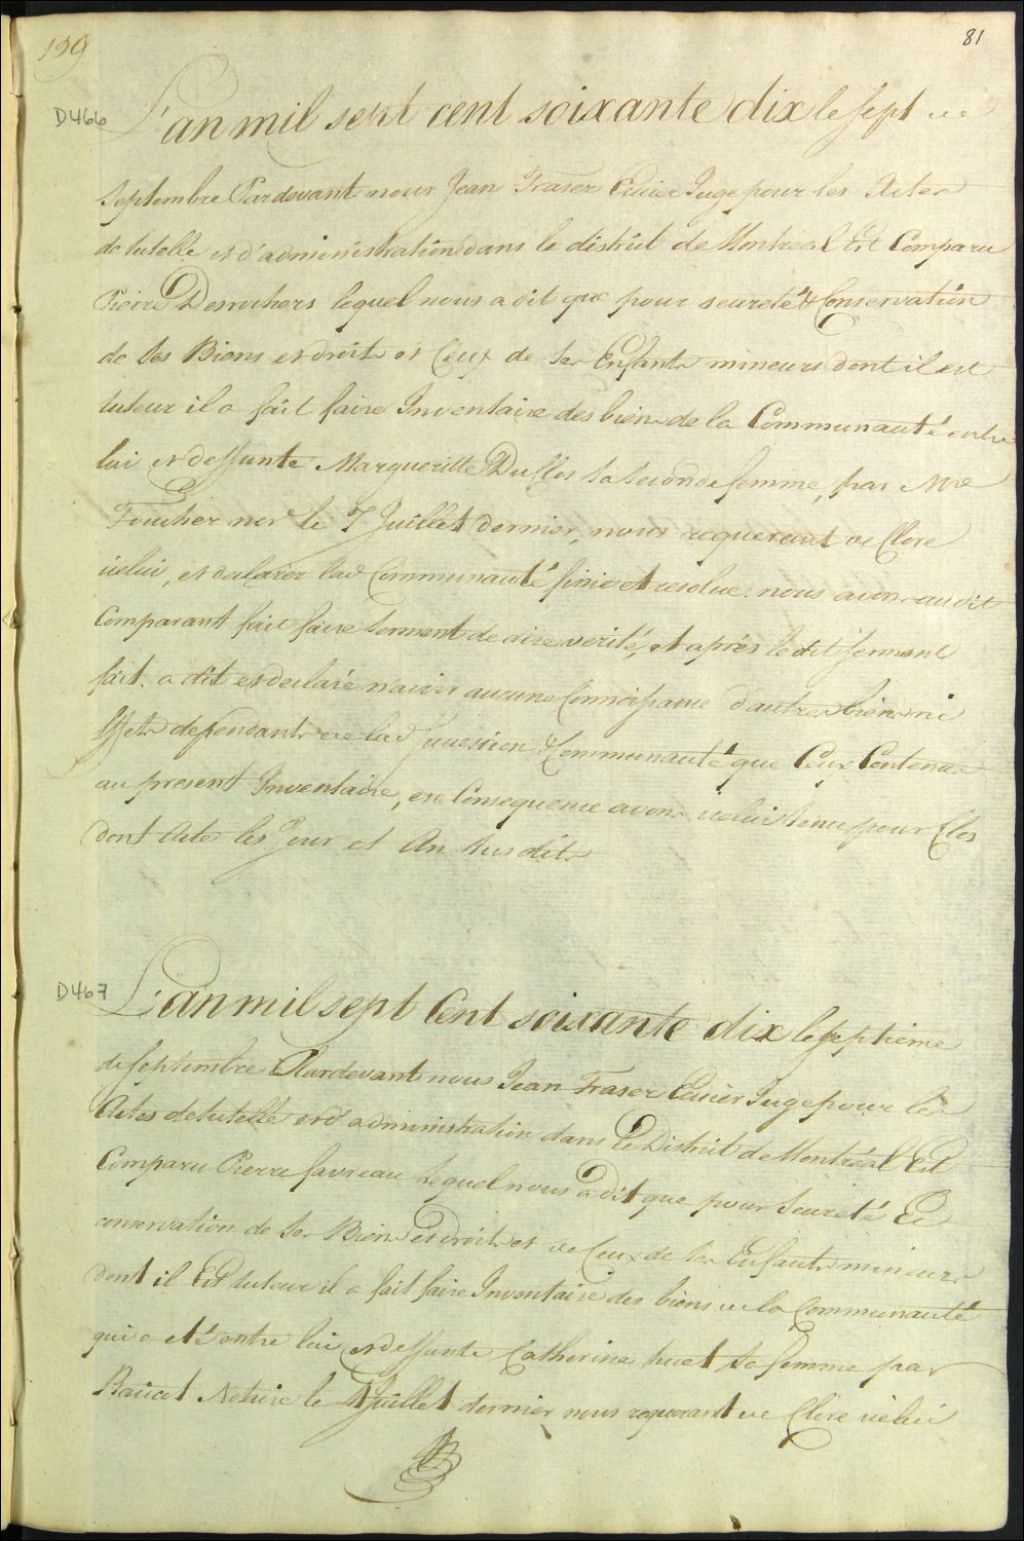 139
81
D466
L'an mil sept cent soixante dix le sept de
septembre Pardevant nous Jean Fraser Ecuier Juge pour les Actes
de tutelle et d'administration dans le district de Montreal Est Comparu
Pierre Desrochers lequel nous a dit que pour seureté & Conservation
de ses Biens et droits et Ceux de ses Enfants mineurs dont il est
tuteur il a fait faire Inventaire des biens de la Communauté entre
lui et deffunte Margueritte Duclos sa seconde femme, par Me
Foucher nore le 7 Juillet dernier, nous requerant de Clore
icelui, et declarer lad Communauté finie et resolue. nous avons audit
Comparant fait faire serment de dire verité, et après ledit serment
fait. a dit et declaré n'avoir aucune Connoissance d'autres biens ni
Effets dependants de lad Succession & Communauté que Ceux Contenus
au present Inventaire, en Consequence avons icelui tenu pour Clos
dont Acte les Jour et An susdits
D467
L'an mil sept Cent soixante dix le septieme
de septembre Pardevant nous Jean Fraser Ecuier Juge pour les
Actes de tutelle et d'administration dans le District de Montréal Est
Comparu Pierre favreau Lequel nous a dit que pour Seureté Et
conservation de ses Biens et droits et de Ceux de ses Enfants mineurs
dont il Est tuteur il a fait faire Inventaire des biens de la Communauté
qui a eté entre lui et deffunte Catherine huet sa femme par
Racicot Notaire le Juillet dernier nous requerant de Clore icelui